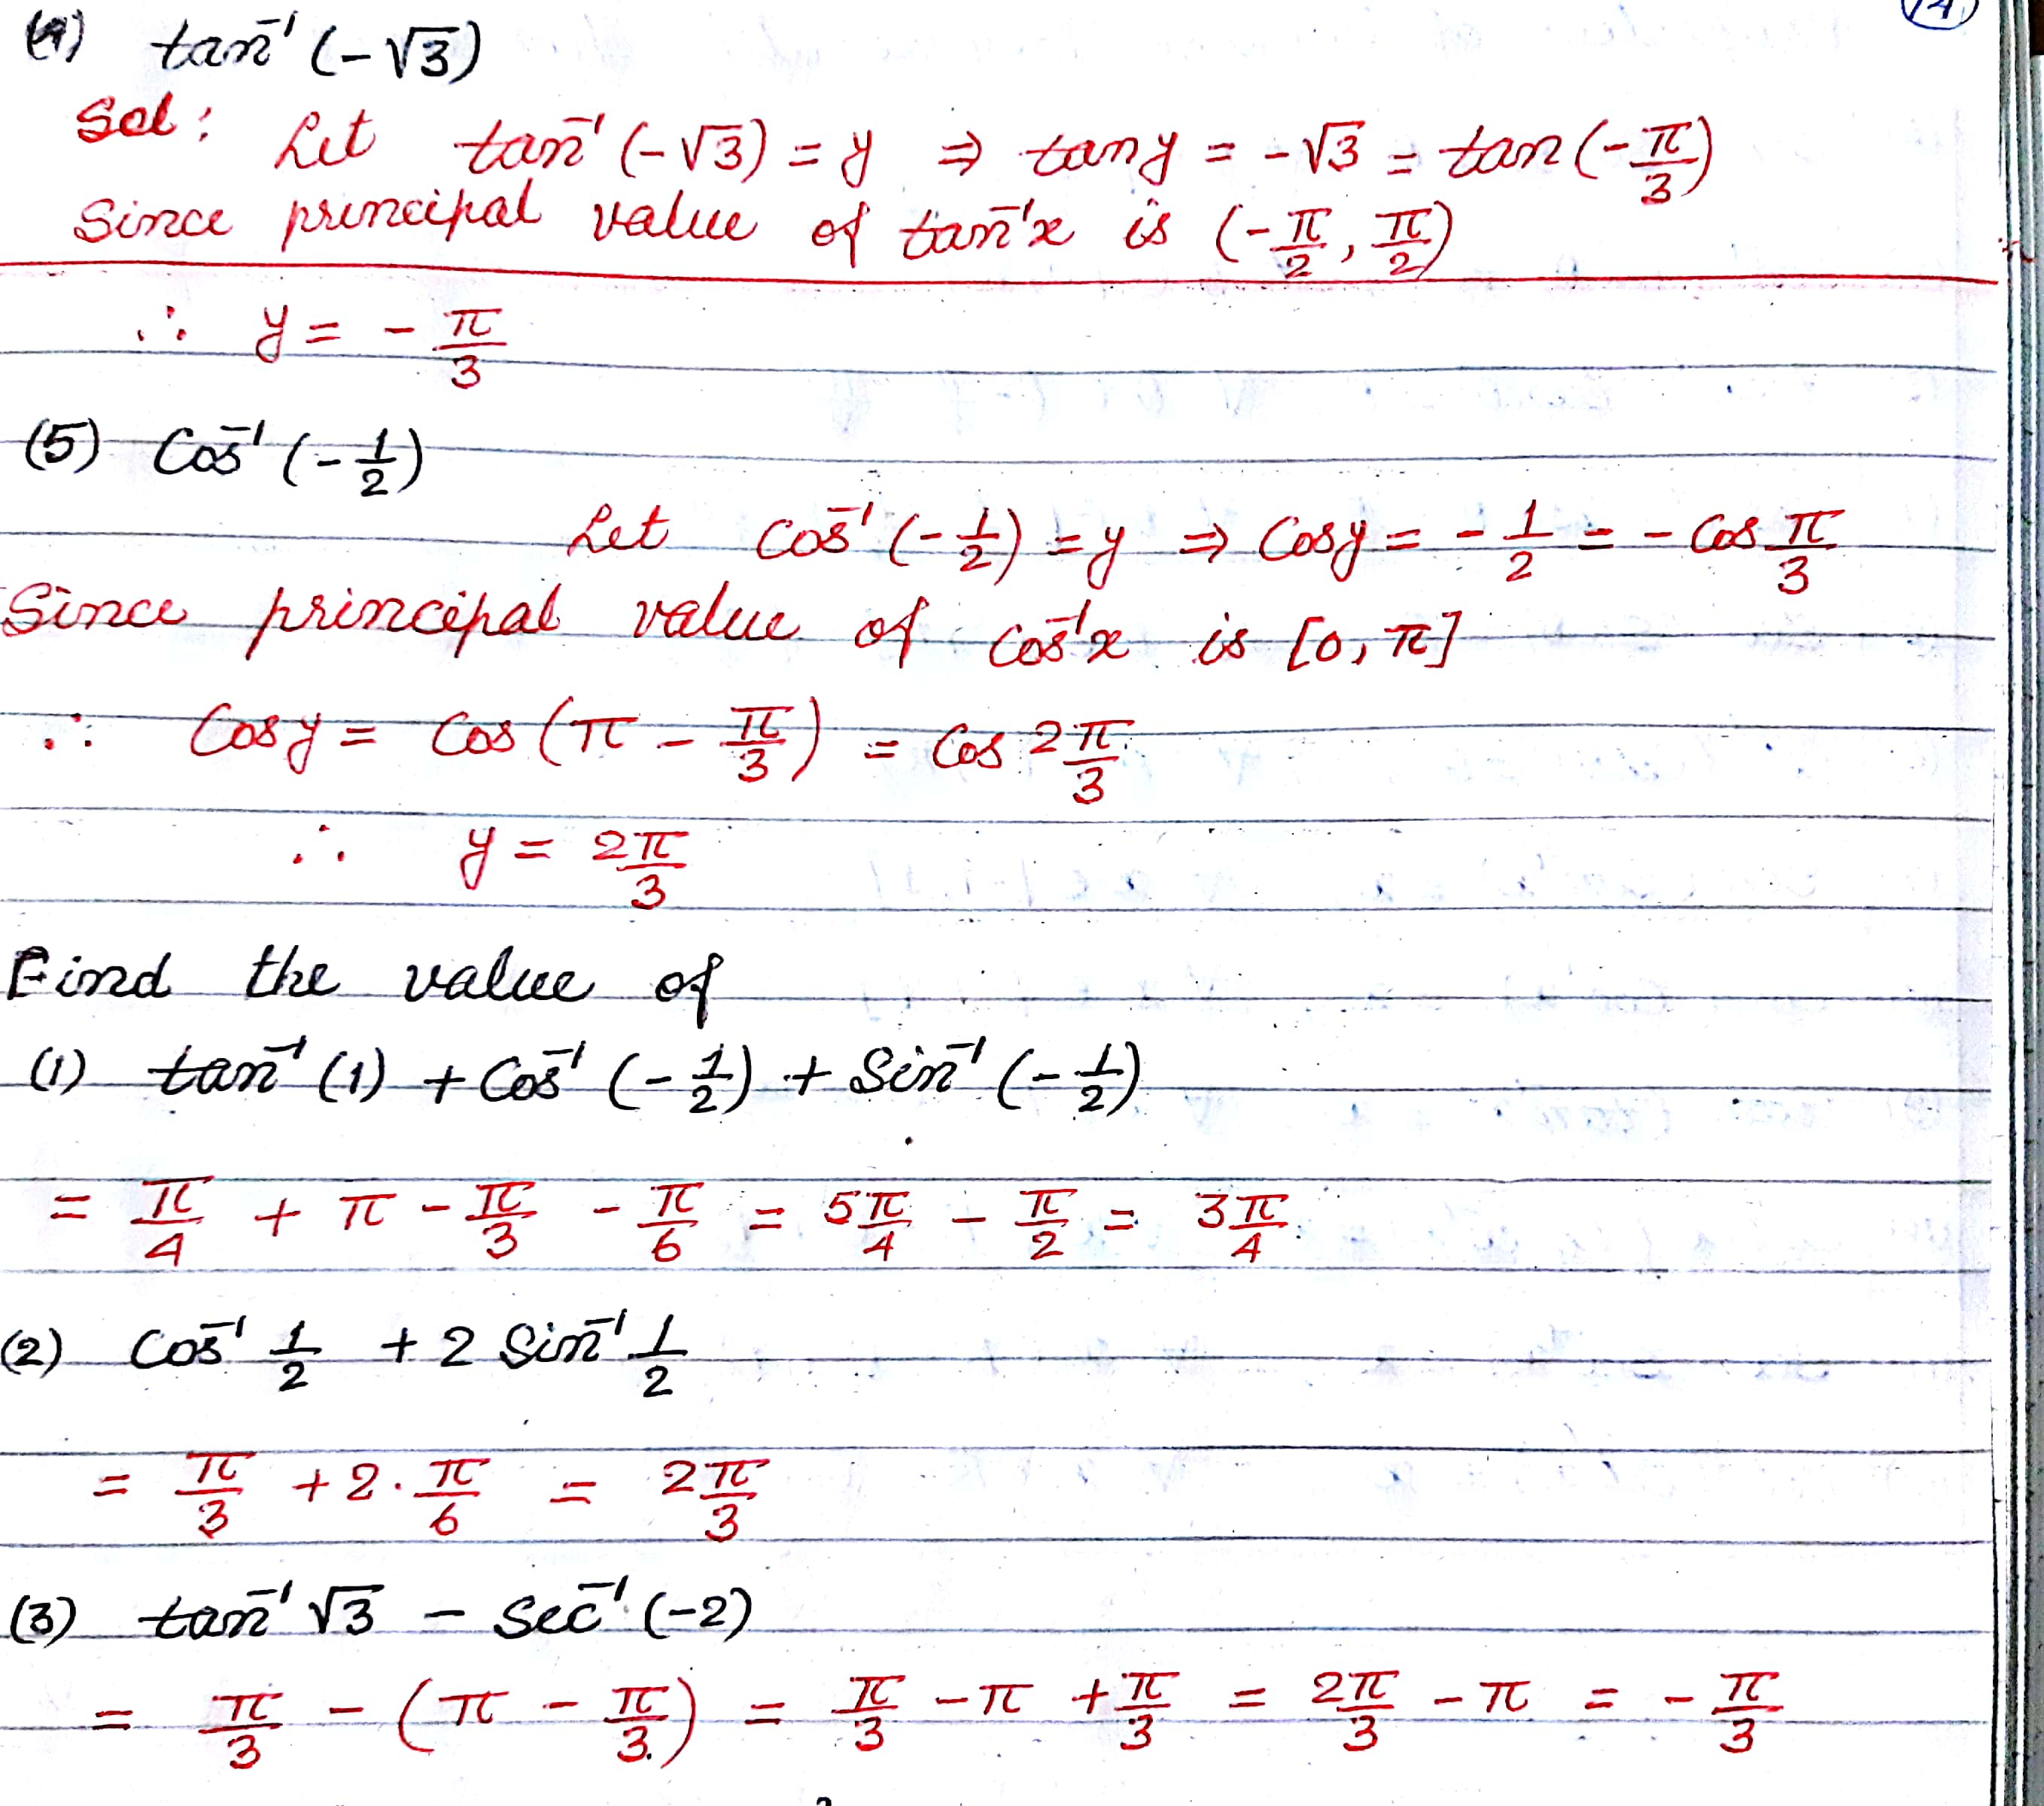 14
(4) tan⁻¹ (-√3)
Sol: Let tan⁻¹ (-√3) = y ⇒ tan y = -√3 = tan (-π/3)
Since principal value of tan⁻¹x is (-π/2, π/2)
∴ y = - π/3
(5) Cos⁻¹ (-1/2)
Let Cos⁻¹ (-1/2) = y ⇒ Cosy = - 1/2 = - Cos π/3
Since principal value of Cos⁻¹x is [0, π]
∴ Cosy = Cos (π - π/3) = Cos 2π/3
∴ y = 2π/3
Find the value of
(1) tan⁻¹ (1) + Cos⁻¹ (-1/2) + Sin⁻¹ (-1/2)
= π/4 + π - π/3 - π/6 = 5π/4 - π/2 = 3π/4
(2) Cos⁻¹ 1/2 + 2 Sin⁻¹ 1/2
= π/3 + 2. π/6 = 2π/3
(3) tan⁻¹ √3 - Sec⁻¹ (-2)
= π/3 - (π - π/3) = π/3 - π + π/3 = 2π/3 - π = - π/3